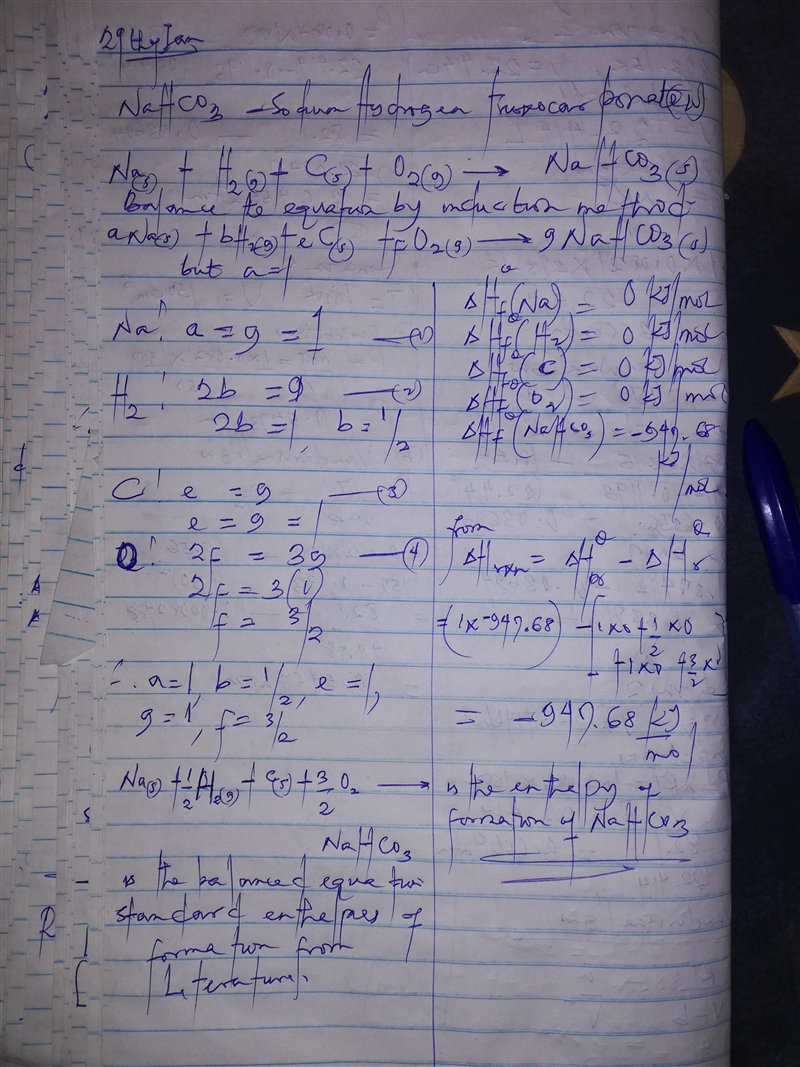 29th Jan
NaHCO3 - Sodium Hydrogen trioxocarbonate(IV)
Na(s) + H2(g) + C(s) + O2(g) → NaHCO3(s)
Balance the equation by induction method
aNa(s) + bH2(g) + eC(s) + fO2(g) → gNaHCO3(s)
but a=1
Na: a = g = 1 —(1)
H2: 2b = g —(2)
2b = 1, b = 1/2
C: e = g —(3)
e = g = 1
O: 2f = 3g —(4)
2f = 3(1)
f = 3/2
∴ a=1, b=1/2, e=1,
g=1, f=3/2
Na(s) + 1/2 H2(g) + C(s) + 3/2 O2 →
NaHCO3
is the balanced equation
standard enthalpies of
formation from
Literature,
ΔHf°(Na) = 0 kJ/mol
ΔHf°(H2) = 0 kJ/mol
ΔHf°(C) = 0 kJ/mol
ΔHf°(O2) = 0 kJ/mol
ΔHf°(NaHCO3) = -947.68
kJ/mol
from
ΔHrxn = ΔH° - ΔH°
= (1x-947.68) - [1x0 + 1/2 x0
+1x0 + 3/2 x
= -947.68 kJ/mol
is the enthalpy of
formation of NaHCO3